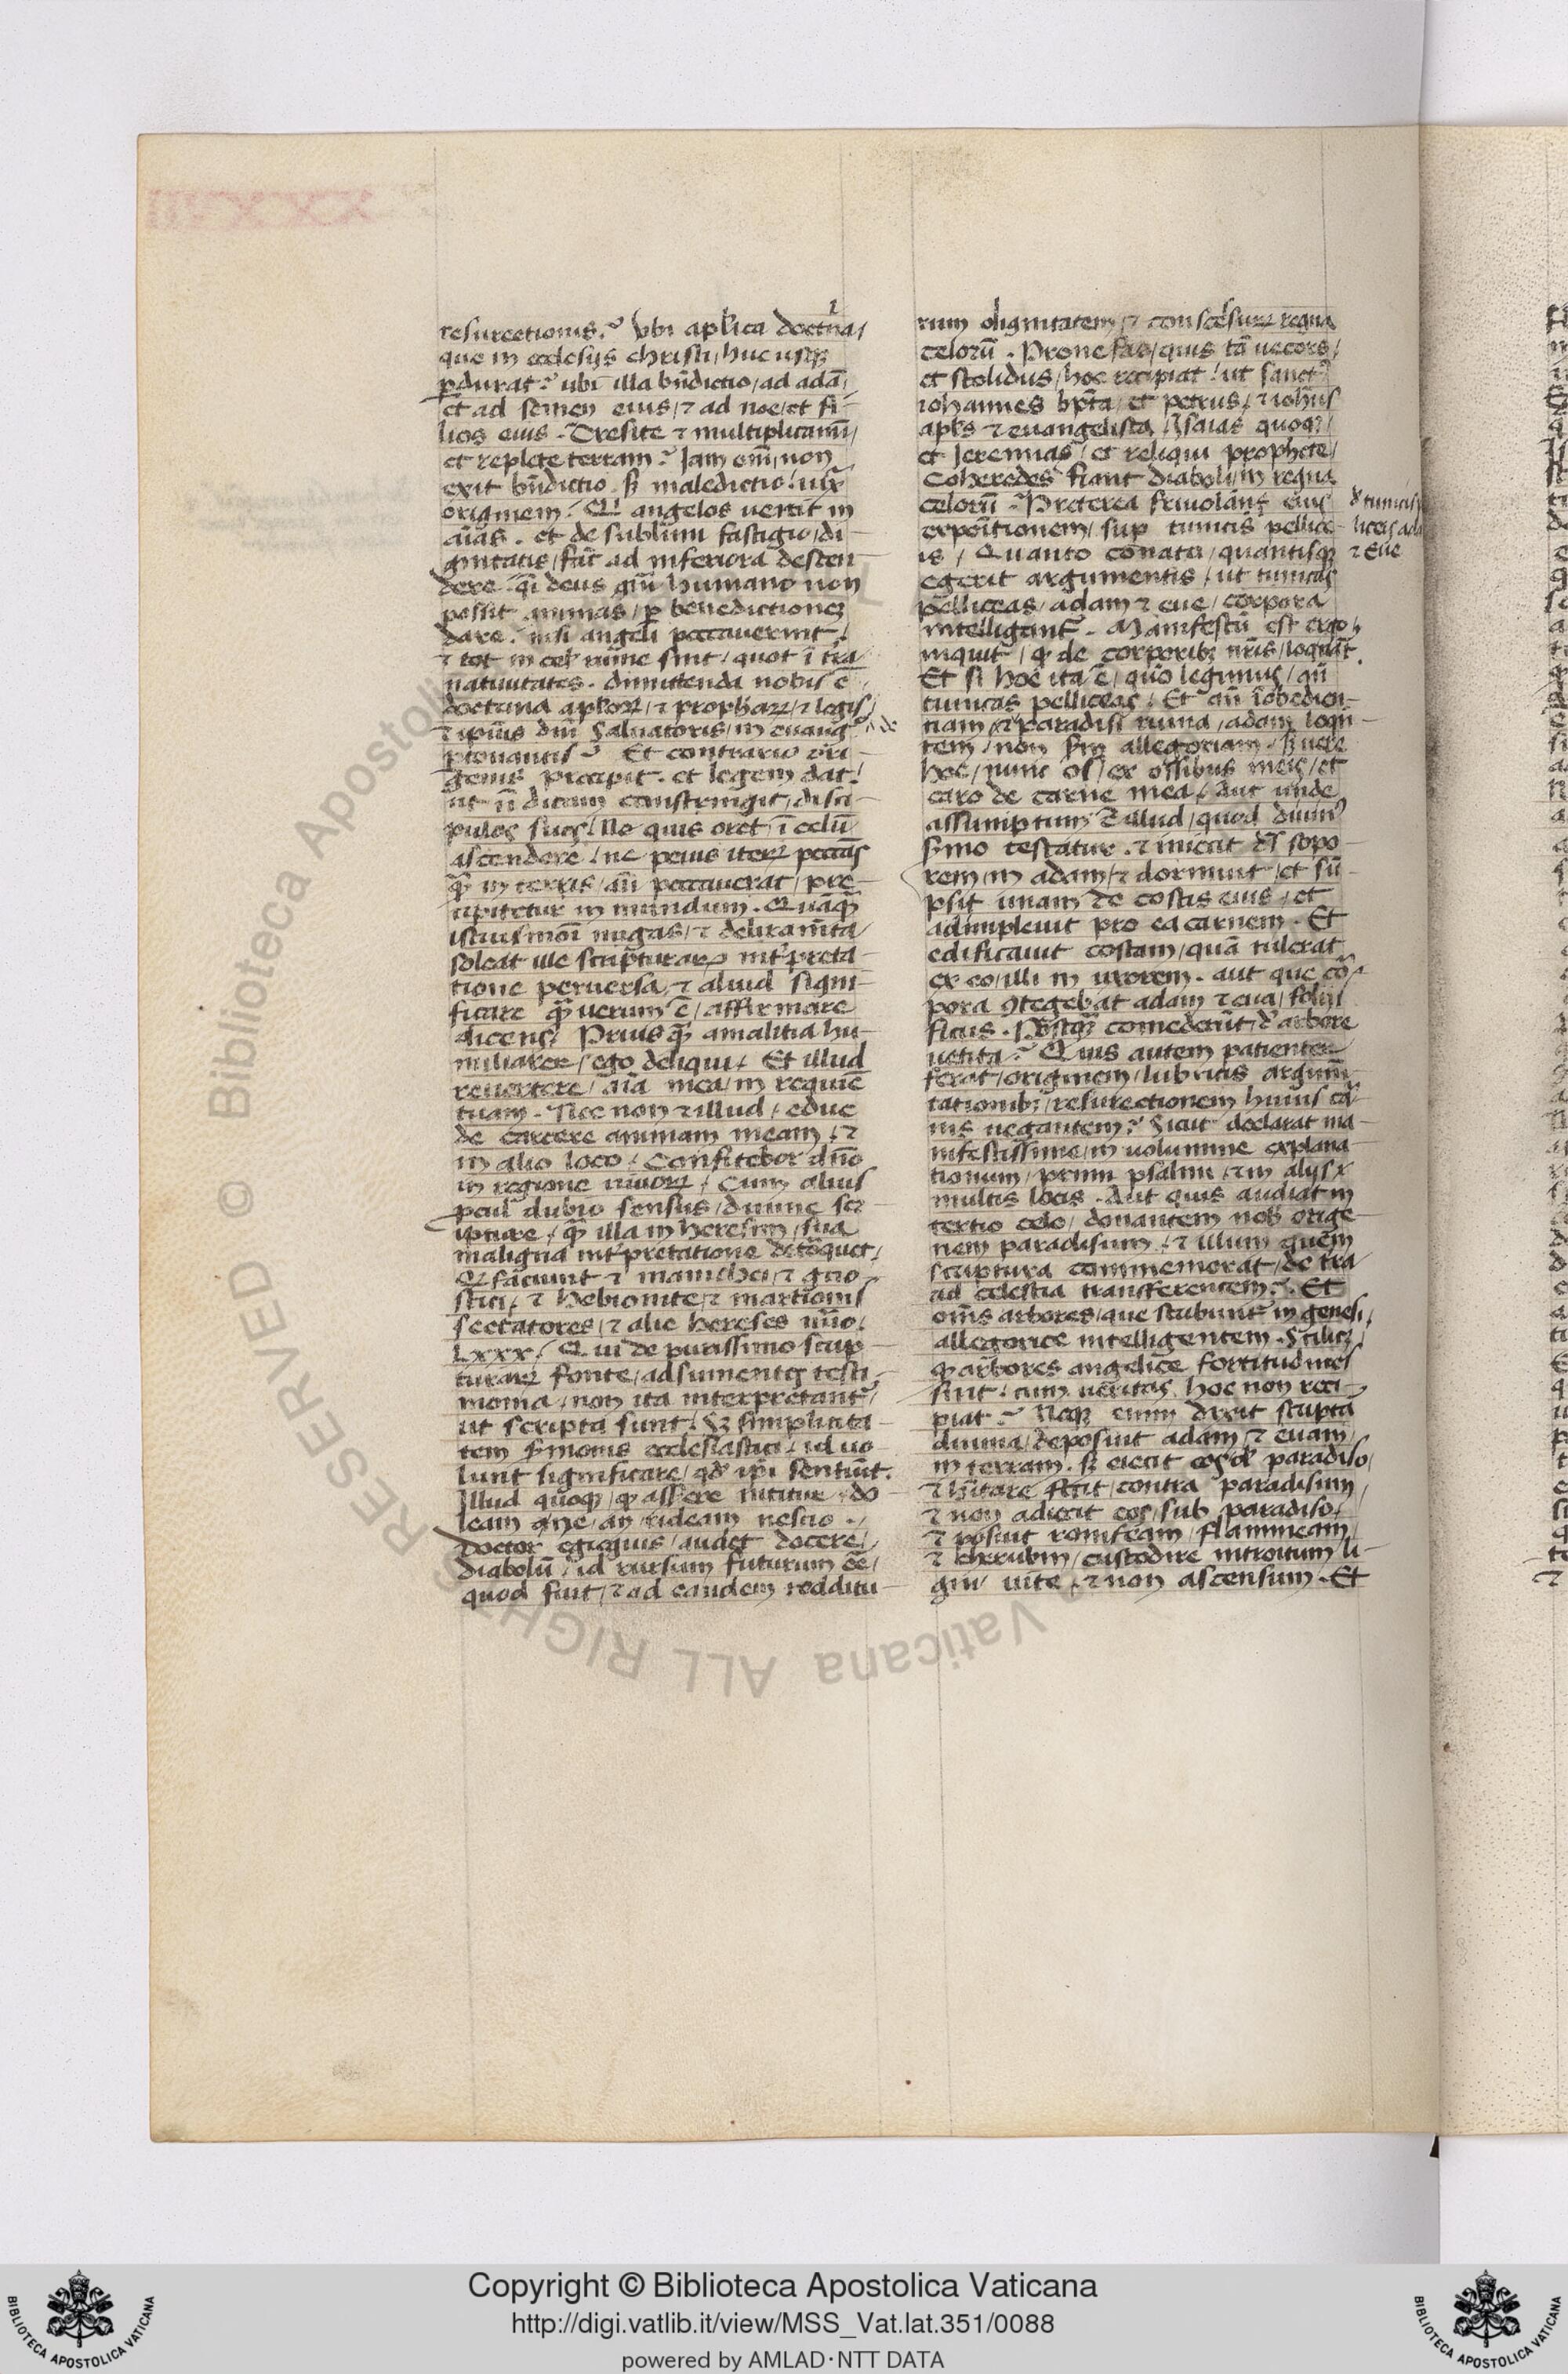 resurrectionis? Vbi aplica doctina/
que in ecclesijs christi/huc usqꝫ
ꝑdurat? ubi illa bn̄dictio/ad adā/
et ad semen eius/⁊ ad noe/et fi-
lios eius. Cresite ⁊ multiplicami͂/
et replete terram? Iam em̄/non
erit bn̄dictio. sꝫ maledictio/iux̄
origenem/ Qꝫ angelos uertit in
aīas. et de sublimi fastigio/di
gnitatis/fac̄ ad inferiora descen
dere. qͣi deus gn̄i humano non
possit animas/ꝑ benedictionē
dare/ nisi angeli peccauerint/
⁊ tot in cel' ruīne sint/quot ī tr̄a
natiuitates. dimittenda nobis ē
doctrina aplorꝝ/⁊ prophaꝝ/⁊ legis/
⁊ ipīus dn̄i Saluatoris/in euanḡ
ptonantis? Et contrario ori-
genis precipit. et legem dat/
ut n̄ dicam constringit/disci-
pulos suos/Ne quis oret/ī celū
ascendere/ne peius iterꝝ peccās
qͣꝫ in terris/an̄ peccauerat/pre-
cipitetur in mundum. Quāqͣꝫ
istiusmōi nugas/⁊ deliram̄ta/
soleat ille scripturarꝝ int'preta-
tione peruersa/⁊ aliud signi-
ficare qͣꝫ uerum ē/affirmare
dicens? Prius qͣꝫ amalitia hu-
miliarer/ego deliqui/ Et illud
reuertere/aīa mea/in requiē
tuam. Nec non ⁊ illud/educ
de carcere animam meam/⁊
in alio loco/Confitebor dn̄o
in regione uiuorꝝ/Cum alius
procul dubio sensus/diuine scr
ipture/qͣꝫ illa in heresim/sua
maligna int'pretatione detōquet/
Qꝫ faciunt ⁊ manichei/⁊ gno
stici/⁊ hebionite/⁊ martionis
sectatores/⁊ alie hereses nūo/
Lxxx/ Qui de purissimo scrip
turarꝝ fonte/adsumentes testi-
monia/non ita interpretant͛/
ut scripta sunt/sꝫ simplicita-
tem s̄monis ecclesiastici/id uo
lunt significare/qd' ipī sentiūt.
Illud quoqꝫ/qꝫ assere nititur/do
leam gne/an rideam nescio./
Doctor egregius/audet docere/
diabolū/id rursum futurum eē/
quod fuit/⁊ ad eandem redditu
rum dignitatem/⁊ conscēsurꝝ regna
celorū. Pronefas/quis tā uecors/
et stolidus/hoc recipiat/ut sanctꝰ
iohannes bpt̄a/et petrus/⁊ ioh̄ns
apls ⁊ euangelista/Isaias quoqꝫ/
et Jeremias/et reliqui prophete/
Coheredes fiant diaboli/in regna
celorū? Preterea friuolam eius
expoītionem/sup tunicis pellice-
is/Quanto conatu/quantisqꝫ
egerit argumentis/ut tunicas
pelliceas/adam ⁊ eue/corpora
intelligant͛. Manifestū est ergo
inquit/qꝫ de corporibꝫ nr̄is/loquāt͛.
Et si hoc ita ē/quō legimus/an̄
tunicas pelliceas/Et an̄ īobedien-
tiam/⁊ paradisi ruina/adam loqn-
tem/non sm allegoriam. sꝫ uere
hoc/nunc os/ex ossibus meis/et
caro de carne mea/Aut unde
assumptum ē illud/quod diuinꝰ
s̄mo testatur. ⁊ iniecit ds̄ sopo-
rem/in adam/⁊ dormiuit/et sū-
psit unam de costis eius/et
adimpleuit pro ea carnem. Et
edificauit costam/quā tulerat
ex eo/illi in uxorem. aut que cō-
pora ꝯtegebāt adam ⁊ eua/foliis
ficus. Postqꝫ comederūt/d' arbore
uetita? Quis autem patienter
ferat/originem/lubricis argum̄
tationibꝫ/resurectionem huius ca͛-
nis negantem? Sicut declarat ma-
nifestissime/in uolumine explana-
tionum/primi psalmi/⁊ in alijs
multis locis. Aut quis audiat in
tertio celo/donantem nob̄ orige-
nem paradisum/⁊ illum quem
scriptura commemorat/de tr̄a
ad celestia transferentem? Et
om̄s arbores/que scribunt͛ in genesi/
allegorice intelligentem. Scilicꝫ
qꝫ arbores angelice fortitudines
sint/cum ueritas/hoc non reci-
piat? Neqꝫ enim dixit scriptā
diuina/deposuit adam ⁊ euam/
in terram. sꝫ eiecit eos d' paradiso/
⁊ hītare fecit/contra paradisum/
⁊ non adiecit eos/sub paradiso/
⁊ posuit romfeam/flammeam/
⁊ cherubin/custodire introitum li-
gni uite/⁊ non ascensum. Et
d' tunicis
liceis ada
⁊ Eue
Copyright © Biblioteca Apostolica Vaticana
http://digi.vatlib.it/view/MSS_Vat.lat.351/0088
powered by AMLAD·NTT DATA
© Biblioteca Apostolica Vaticana ALL RIGHTS RESERVED
BIBLIOTECA APOSTOLICA VATICANA
BIBLIOTECA APOSTOLICA VATICANA